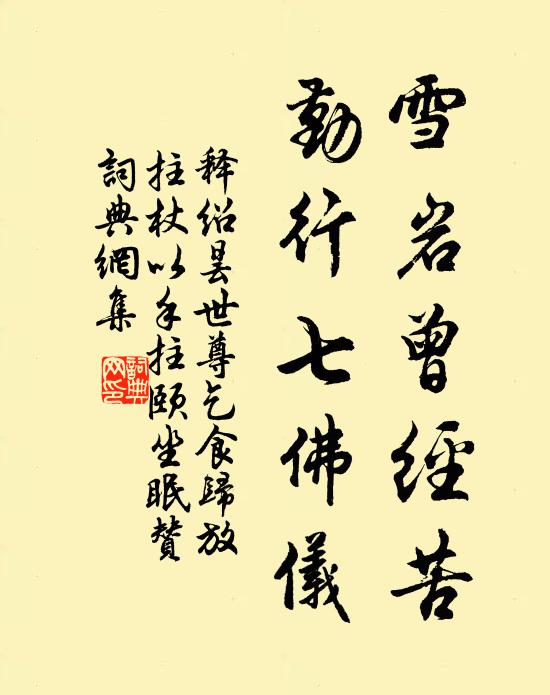 雪岩曾經苦
勤行七佛儀
释绍昙世尊乞食歸放
拄杖以手拄頤坐眠赞
詞典網集
詞典
网印